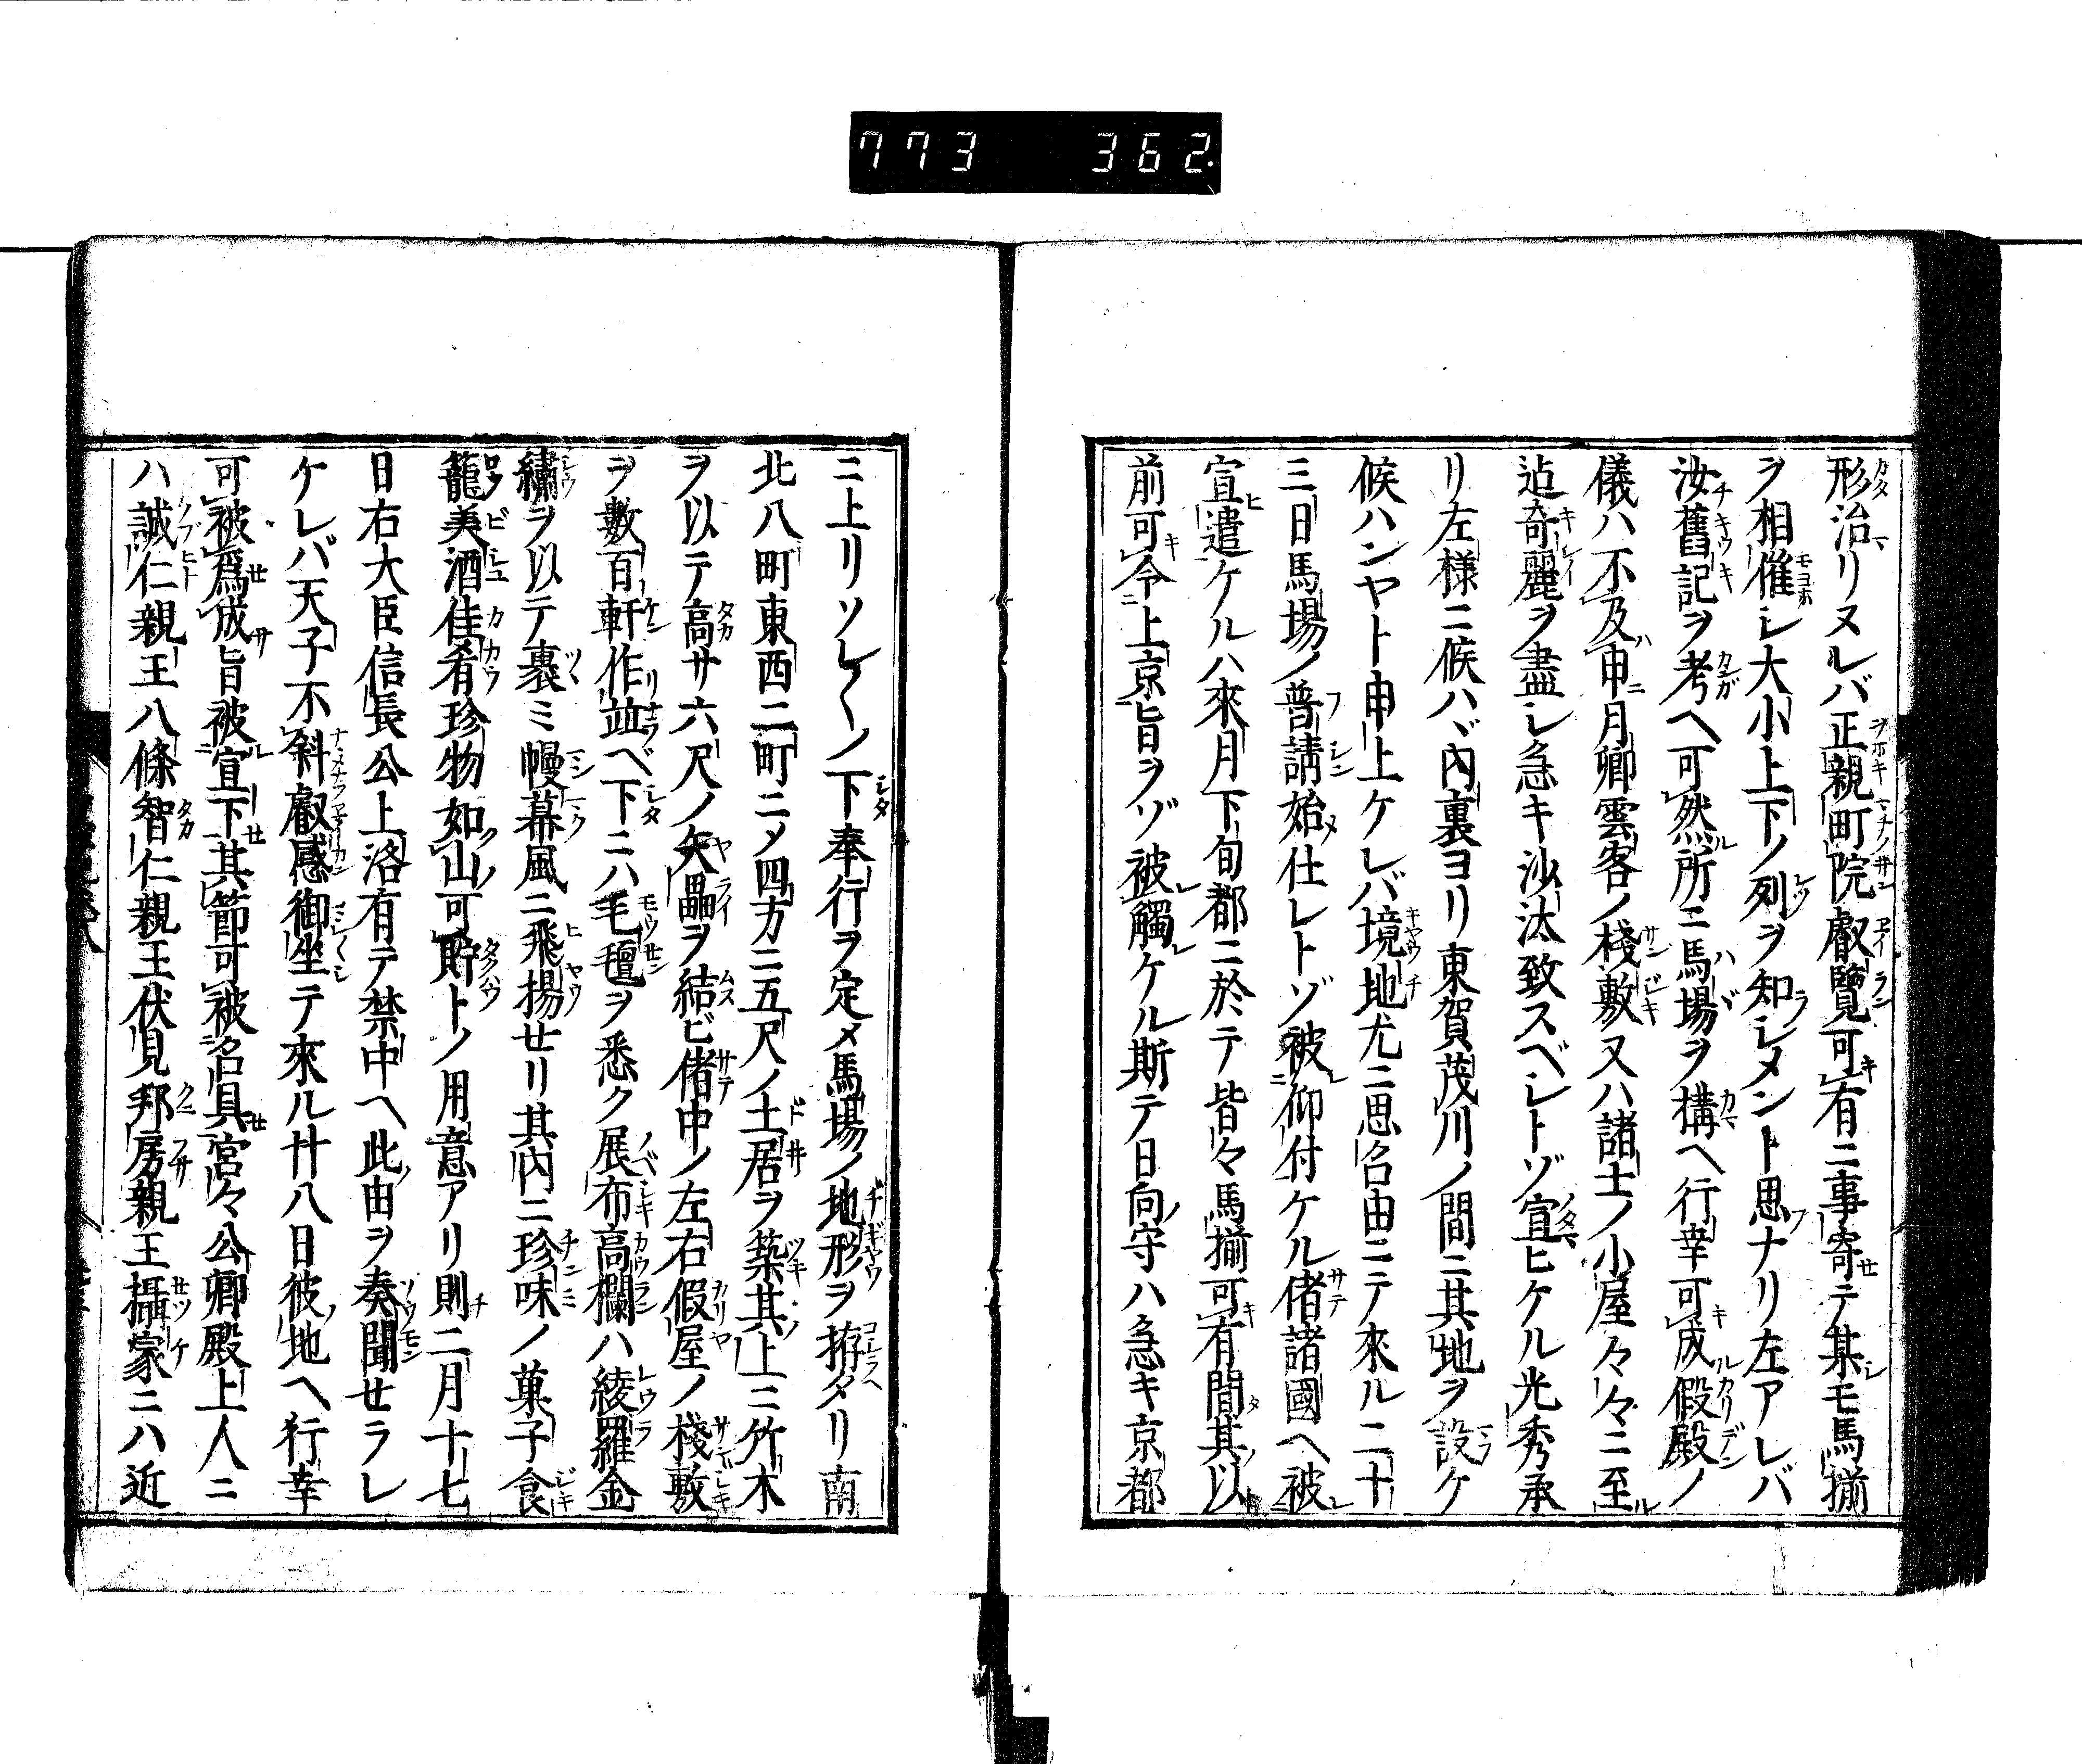 773 362
形治リヌレバ正親町院叡覽可有ニ事寄テ某モ馬揃
ヲ相催シ大小上下ノ列ヲ知シメント思ナリ左アレバ
汝舊記ヲ考ヘ可然所ニ馬場ヲ構ヘ行幸可成假殿ノ
儀ハ不及申月卿雲客ノ棧敷又ハ諸士ノ小屋々々ニ至
迠奇麗ヲ盡シ急キ沙汰致スベシトゾ宣ヒケル光秀承
リ左様ニ候ハヾ内裏ヨリ東賀茂川ノ間ニ其地ヲ設ケ
候ハンヤト申上ケレバ境地尤ニ思召由ニテ來ル二十
三日馬場ノ普請始仕レトゾ被仰付ケル偖諸國ヘ被
宣遣ケルハ來月下旬都ニ於テ皆々馬揃可有間其以
前可令上京旨ヲゾ被觸ケル斯テ日向守ハ急キ京都
ニ上リソレ〱ノ下奉行ヲ定メ馬場ノ地形ヲ拵タリ南
北八町東西二町ニメ四方ニ五尺ノ土居ヲ築其上ニ竹木
ヲ以テ高サ六尺ノ矢畾ヲ結ビ偖中ノ左右假屋ノ棧敷
ヲ數百軒作並ベ下ニハ毛氈ヲ悉ク展布高欄ハ綾羅金
繍ヲ以テ裹ミ幔幕風ニ飛揚セリ其内ニ珍味ノ菓子食
籠美酒佳肴珍物如山可貯トノ用意アリ則二月十七
日右大臣信長公上洛有テ禁中ヘ此由ヲ奏聞セラレ
ケレバ天子不斜叡感御坐テ來ル廿八日彼地ヘ行幸
可被爲成旨被宣下其節可被召具宮々公卿殿上人ニ
ハ誠仁親王八條智仁親王伏見邦房親王攝家ニハ近